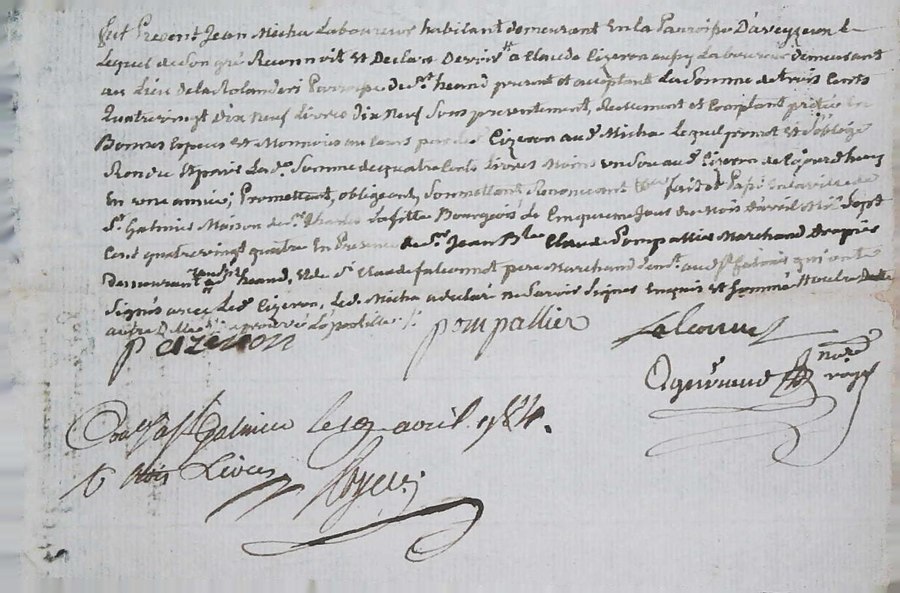 fut Present Jean Micha Laboureur habitant demeurant En la Parroisse D'aveyzieu Le
lequel de son gré Reconnoit Et Declare Devoir à Claude Cizeron aussy Laboureur demeurant
au Lieu de la Rolandieri Parroisse de St heand present et acceptant La Somme de trois Cents
Quatrevingt Dix Neuf Livres dix Neuf Sous presentement, Reellement et Comptant
Bonnes Especes et Monnoies au Cours par led Cizeron aud Micha Lequel promet Et S'oblige
Rendre Et paier Lade Somme de quatre Cents Livres Moins un Sou aud Cizeron de Ce jourd'huy
En une année; Promettant, obligeant, Soumettant, Renoncant fait et Passé En la ville de
St Galmier Maison de Sr Bourgeois Le Cinquieme Jour du Mois d'avril Mil Sept
Cent quatrevingt quatre En Presence de Sr Jean Bte Claude Pompallier Marchand Drapier
Demeurant aud St heand, Et de Sr Claude falconnet pere Marchand demt aud St Galmier qui ont
Signés avec Led Cizeron, Led Micha a declaré ne Savoir Signer Enquis et Sommé
approuvé L'apostille
p cizeron pompallier falconnet
nore
royal
Coné à St Galmier le 19 avril 1784.
R trois Livres